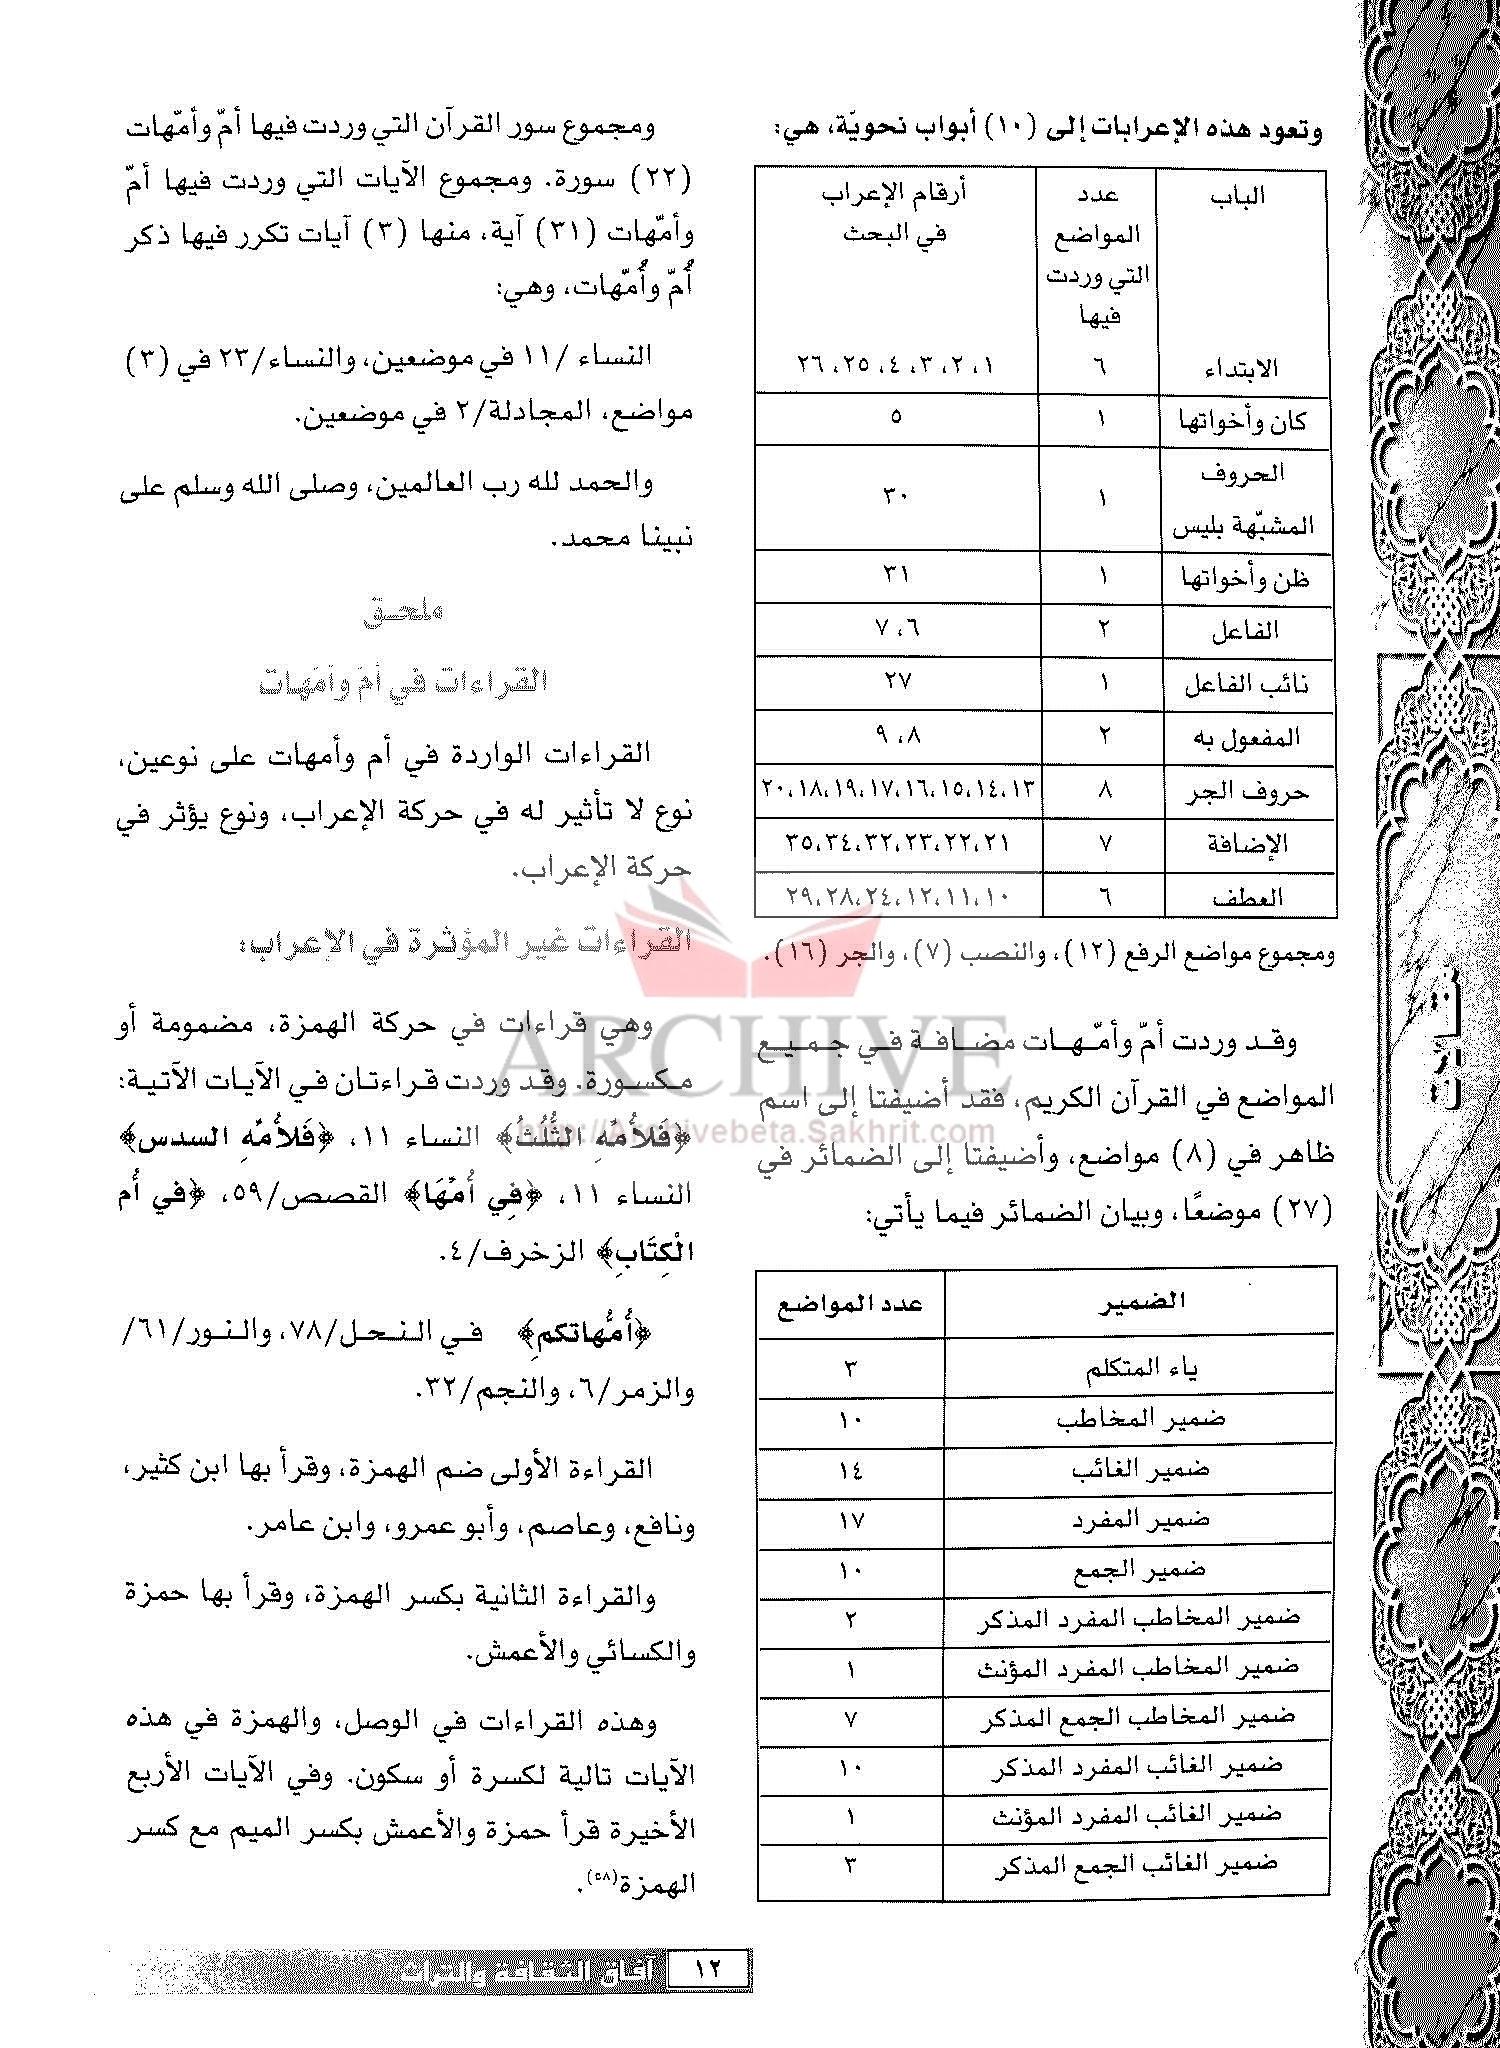 وتعود هذه الإعرابات إلى (١٠) أبواب نحويّة، هي:
الباب | عدد المواضع التي وردت فيها | أرقام الإعراب في البحث
الابتداء | ٦ | ١، ٢، ٣، ٤، ٢٥، ٢٦
كان وأخواتها | ١ | ٥
الحروف المشبّهة بليس | ١ | ٣٠
ظن وأخواتها | ١ | ٣١
الفاعل | ٢ | ٦، ٧
نائب الفاعل | ١ | ٢٧
المفعول به | ٢ | ٨، ٩
حروف الجر | ٨ | ١٣، ١٤، ١٥، ١٦، ١٧، ١٩، ١٨، ٢٠
الإضافة | ٧ | ٢١، ٢٢، ٢٣، ٣٢، ٣٤، ٣٥
العطف | ٦ | ١٠، ١١، ١٢، ٢٤، ٢٨، ٢٩
ومجموع مواضع الرفع (١٢)، والنصب (٧)، والجر (١٦).
وقد وردت أمّ وأمّهات مضافة في جميع
المواضع في القرآن الكريم، فقد أضيفتا إلى اسم
ظاهر في (٨) مواضع، وأضيفتا إلى الضمائر في
(٢٧) موضعًا، وبيان الضمائر فيما يأتي:
الضمير | عدد المواضع
ياء المتكلم | ٣
ضمير المخاطب | ١٠
ضمير الغائب | ١٤
ضمير المفرد | ١٧
ضمير الجمع | ١٠
ضمير المخاطب المفرد المذكر | ٢
ضمير المخاطب المفرد المؤنث | ١
ضمير المخاطب الجمع المذكر | ٧
ضمير الغائب المفرد المذكر | ١٠
ضمير الغائب المفرد المؤنث | ١
ضمير الغائب الجمع المذكر | ٣
ومجموع سور القرآن التي وردت فيها أمّ وأمّهات
(٢٢) سورة. ومجموع الآيات التي وردت فيها أمّ
وأمّهات (٣١) آية، منها (٣) آيات تكرر فيها ذكر
أُمّ وأُمّهات، وهي:
النساء /١١ في موضعين، والنساء/٢٣ في (٣)
مواضع، المجادلة/٢ في موضعين.
والحمد لله رب العالمين، وصلى الله وسلم على
نبينا محمد.
ملحق
القراءات في أمّ وأمّهات
القراءات الواردة في أم وأمهات على نوعين،
نوع لا تأثير له في حركة الإعراب، ونوع يؤثر في
حركة الإعراب.
القراءات غير المؤثرة في الإعراب:
وهي قراءات في حركة الهمزة، مضمومة أو
مكسورة. وقد وردت قراءتان في الآيات الآتية:
﴿فَلأُمِّهِ الثُّلُثُ﴾ النساء ١١، ﴿فَلأُمِّهِ السدس﴾
النساء ١١، ﴿فِي أُمِّهَا﴾ القصص/٥٩، ﴿في أُم
الْكِتَابِ﴾ الزخرف/٤.
﴿أُمَّهاتكم﴾ في النحل/٧٨، والنور/٦١/
والزمر/٦، والنجم/٣٢.
القراءة الأولى ضم الهمزة، وقرأ بها ابن كثير،
ونافع، وعاصم، وأبو عمرو، وابن عامر.
والقراءة الثانية بكسر الهمزة، وقرأ بها حمزة
والكسائي والأعمش.
وهذه القراءات في الوصل، والهمزة في هذه
الآيات تالية لكسرة أو سكون. وفي الآيات الأربع
الأخيرة قرأ حمزة والأعمش بكسر الميم مع كسر
الهمزة(٥٨).
مقالات
١٢ آفاق الثقافة والتراث
ARCHIVE
http://Archivebeta.Sakhrit.com